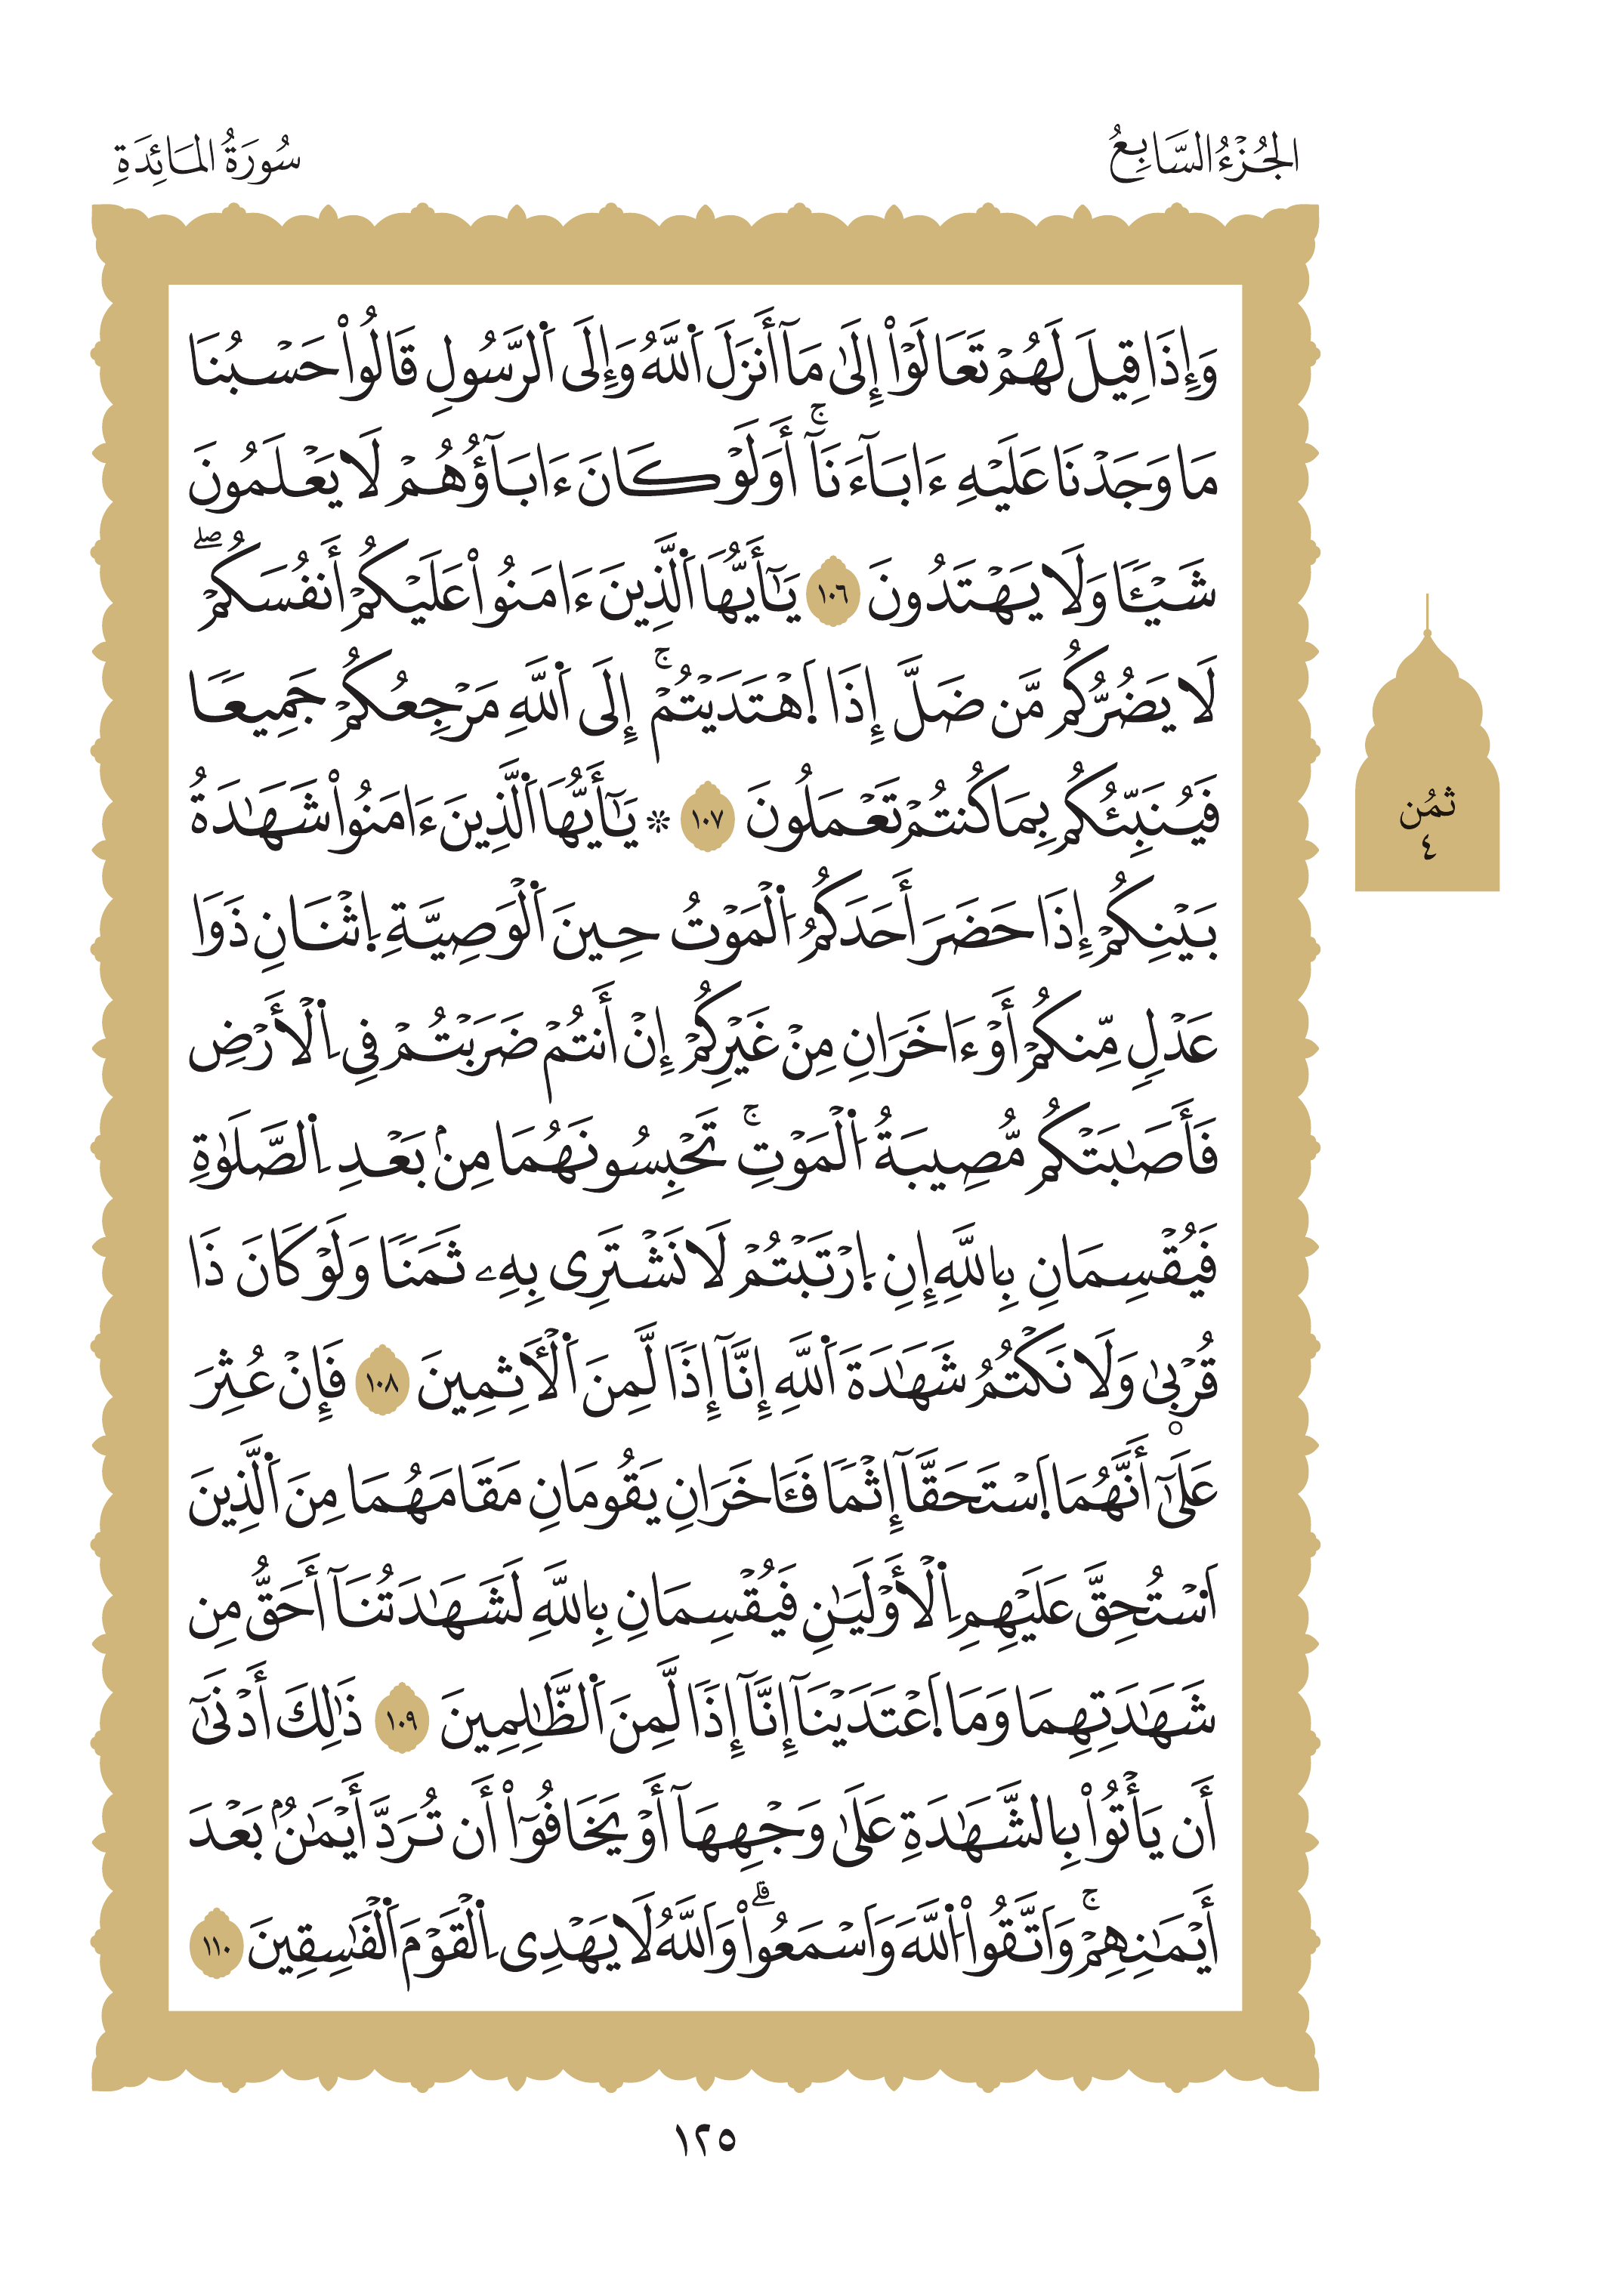 الجُزْءُ السَّابِعُ
سُورَةُ المَائِدَةِ
وَإِذَا قِيلَ لَهُمْ تَعَالَوْاْ إِلَىٰ مَآ أَنزَلَ اَ۬للَّهُ وَإِلَى اَ۬لرَّسُولِ قَالُواْ حَسْبُنَا
مَا وَجَدْنَا عَلَيْهِ ءَابَآءَنَآۚ أَوَلَوْ كَانَ ءَابَآؤُهُمْ لَا يَعْلَمُونَ
شَيْـًٔا وَلَا يَهْتَدُونَ ١٠٦ يَٰٓأَيُّهَا اَ۬لَّذِينَ ءَامَنُواْ عَلَيْكُمْ أَنفُسَكُمْۖ
لَا يَضُرُّكُم مَّن ضَلَّ إِذَا اَ۪هْتَدَيْتُمْۚ إِلَى اَ۬للَّهِ مَرْجِعُكُمْ جَمِيعًا
فَيُنَبِّئُكُم بِمَا كُنتُمْ تَعْمَلُونَ ١٠٧ ۞ يَٰٓأَيُّهَا اَ۬لَّذِينَ ءَامَنُواْ شَهَٰدَةُ
بَيْنِكُمْ إِذَا حَضَرَ أَحَدَكُمُ اُ۬لْمَوْتُ حِينَ اَ۬لْوَصِيَّةِ اِ۪ثْنَانِ ذَوَا
عَدْلٍ مِّنكُمْ أَوْ ءَاخَرَانِ مِنْ غَيْرِكُمْ إِنْ أَنتُمْ ضَرَبْتُمْ فِي اِ۬لْأَرْضِ
فَأَصَٰبَتْكُم مُّصِيبَةُ اُ۬لْمَوْتِۚ تَحْبِسُونَهُمَا مِنۢ بَعْدِ اِ۬لصَّلَوٰةِ
فَيُقْسِمَانِ بِاللَّهِ إِنِ اِ۪رْتَبْتُمْ لَا نَشْتَرِي بِهِۦ ثَمَنًا وَلَوْ كَانَ ذَا
قُرْب۪ىٰ وَلَا نَكْتُمُ شَهَٰدَةَ اَ۬للَّهِ إِنَّآ إِذًا لَّمِنَ اَ۬لْأٓثِمِينَ ١٠٨ فَإِنْ عُثِرَ
عَلَىٰٓ أَنَّهُمَا اَ۪سْتَحَقَّآ إِثْمًا فَـَٔاخَرَانِ يَقُومَانِ مَقَامَهُمَا مِنَ اَ۬لَّذِينَ
اَ۟سْتُحِقَّ عَلَيْهِمِ اِ۬لْأَوْلَيَٰنِ فَيُقْسِمَانِ بِاللَّهِ لَشَهَٰدَتُنَآ أَحَقُّ مِن
شَهَٰدَتِهِمَا وَمَا اَ۪عْتَدَيْنَآ إِنَّآ إِذًا لَّمِنَ اَ۬لظَّٰلِمِينَ ١٠٩ ذَٰلِكَ أَدْنَىٰٓ
أَن يَأْتُواْ بِالشَّهَٰدَةِ عَلَىٰ وَجْهِهَآ أَوْ يَخَافُوٓاْ أَن تُرَدَّ أَيْمَٰنُۢ بَعْدَ
أَيْمَٰنِهِمْۚ وَاَتَّقُواْ اُ۬للَّهَ وَاَسْمَعُواْۗ وَاَللَّهُ لَا يَهْدِي اِ۬لْقَوْمَ اَ۬لْفَٰسِقِينَ ١١٠
ثمُن
٤
١٢٥